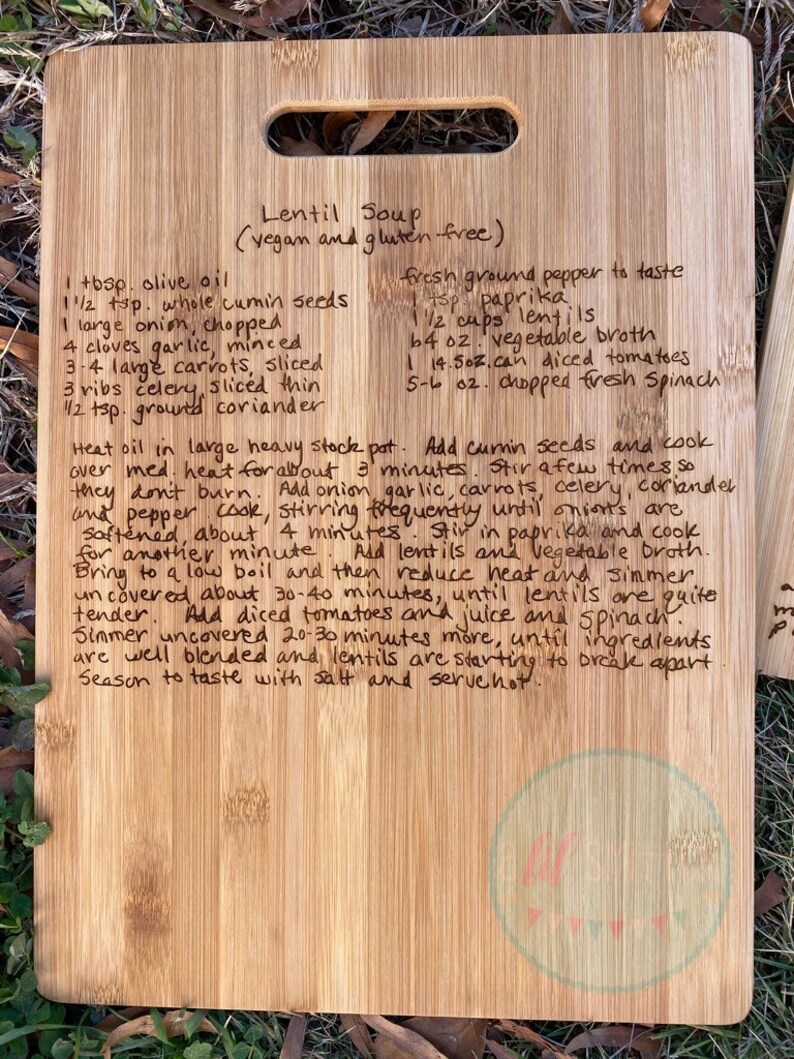 Lentil Soup
(vegan and gluten-free)
1 tbsp. olive oil
1 1/2 tsp. whole cumin seeds
1 large onion, chopped
4 cloves garlic, minced
3-4 large carrots, sliced
3 ribs celery, sliced thin
1/2 tsp. ground coriander
fresh ground pepper to taste
1 tsp. paprika
1 1/2 cups lentils
64 oz. vegetable broth
1 14.5oz. can diced tomatoes
5-6 oz. chopped fresh spinach
Heat oil in large heavy stock pot. Add cumin seeds and cook
over med. heat for about 3 minutes. Stir a few times so
they don't burn. Add onion garlic, carrots, celery, coriander
and pepper. Cook, stirring frequently until onions are
softened, about 4 minutes. Stir in paprika and cook
for another minute. Add lentils and vegetable broth.
Bring to a low boil and then reduce heat and simmer
uncovered about 30-40 minutes, until lentils are quite
tender. Add diced tomatoes and juice and spinach.
Simmer uncovered 20-30 minutes more, until ingredients
are well blended and lentils are starting to break apart.
Season to taste with salt and serve hot.
a lil